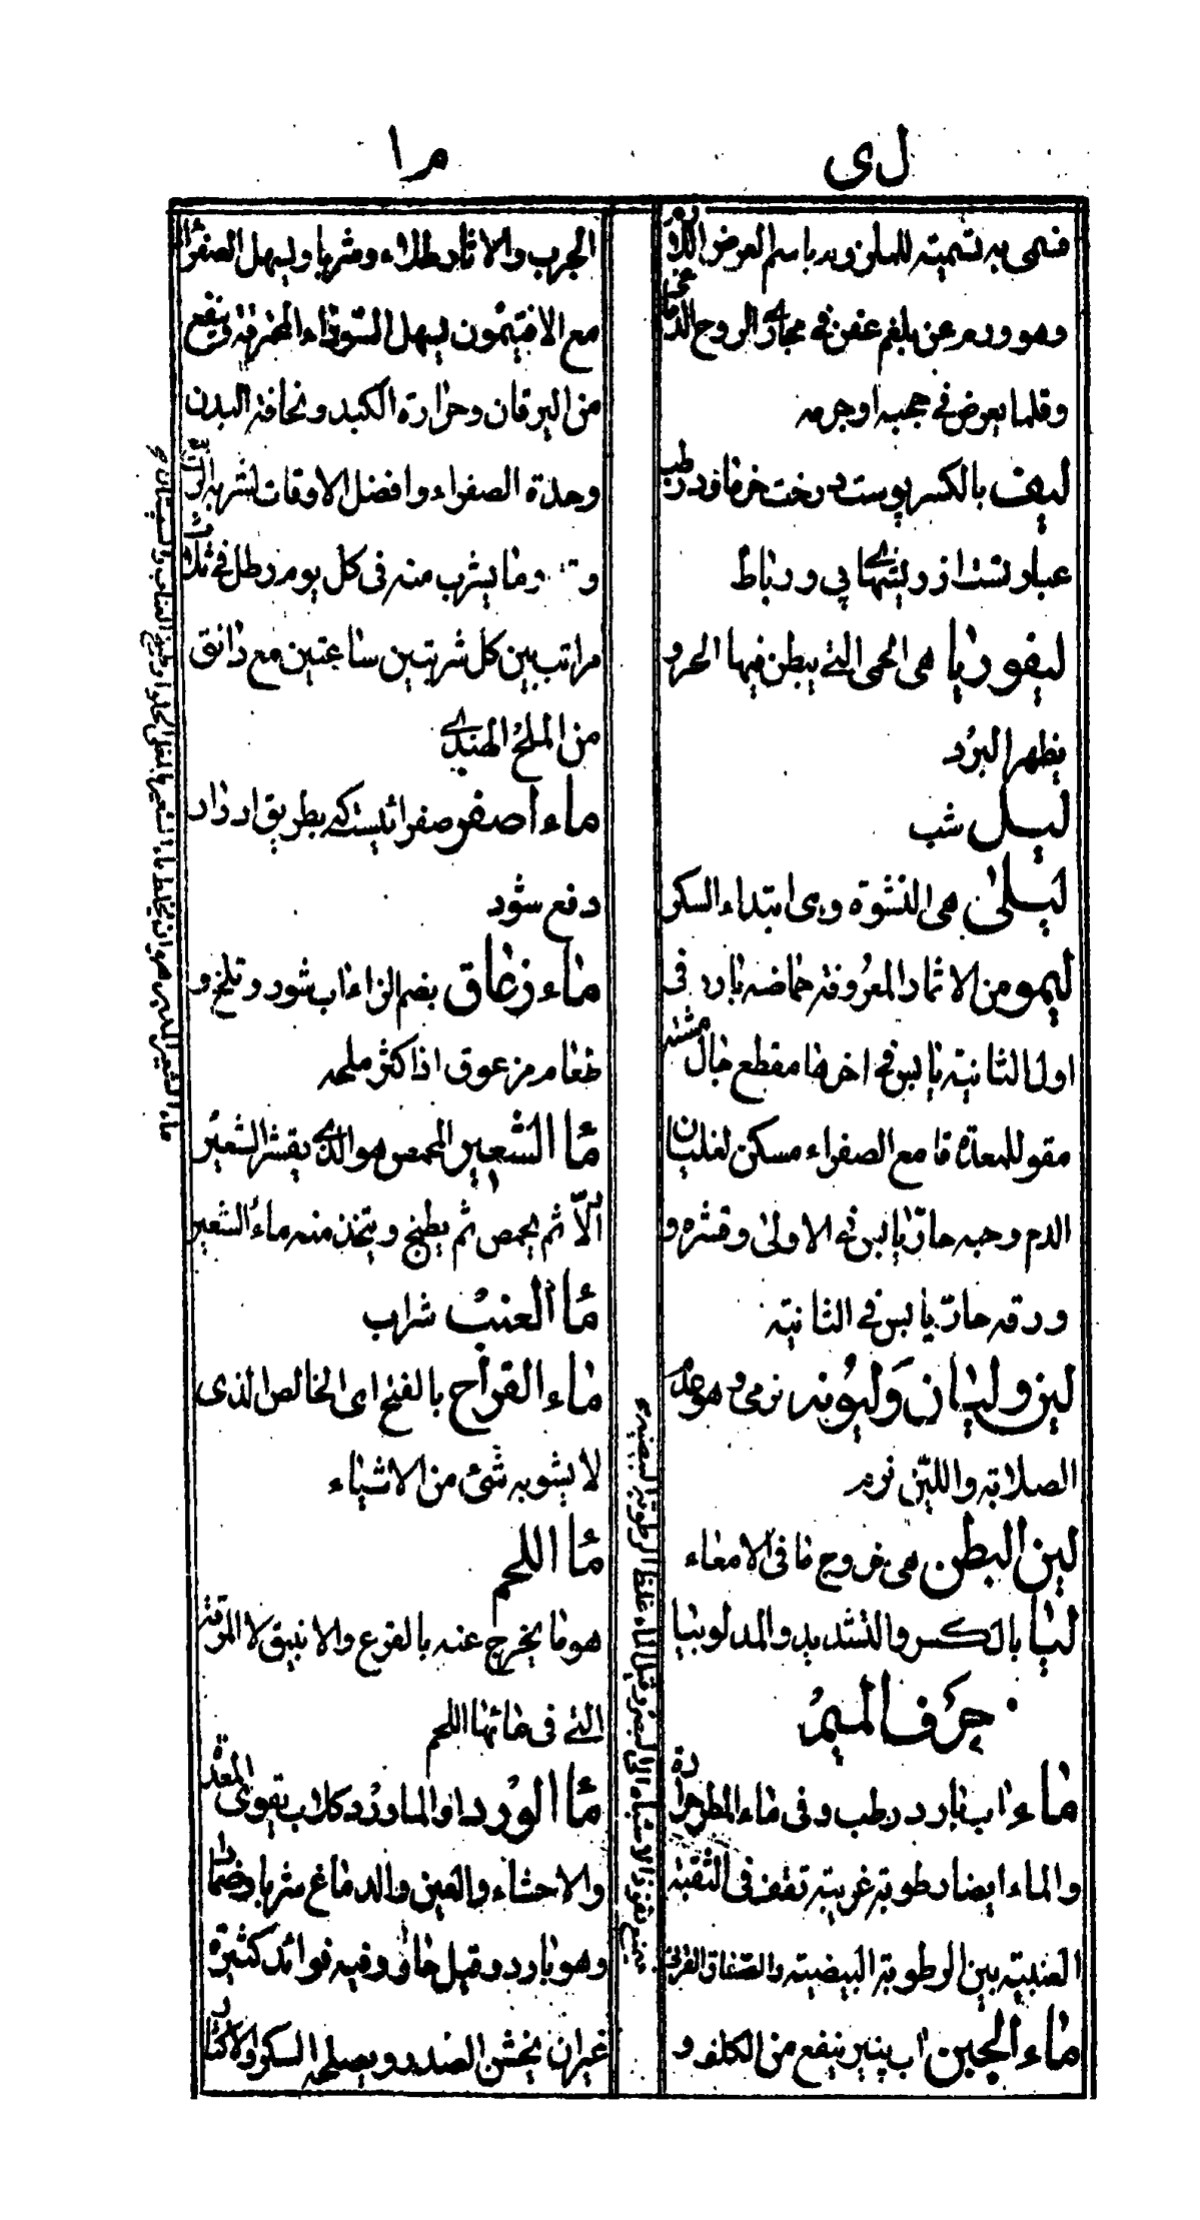 ل ی
م ا
فسمی به تسمیته للملزوم باسم العرض اللازم
وهو ورم عن بلغم عفن فی مجاری الروح الدماغی
وقلما یعرض فی حجبه او جرمه
لیف بالکسر پوست درخت خرما و در طب
عبارتست از ریشهای پی و رباط
لیفوریا هی الحمی التی یبطن فیها الحر و
یظهر البرد
لیل شب
لیلی هی النشوة وهی ابتداء السکر
لیمو من الاثمار المعروفة حماضه بارد فی
اول الثانیة یابس فی اخرها مقطع جال مشته
مقو للمعدة قامع الصفراء مسکن لغلیان
الدم وحبه حار یابس فی الاولی وقشره و
ورقه حار یابس فی الثانیة
لین و لیان و لیونه نرمی و هو عدم
الصلابة واللین نرم
لین البطن هی خروج ما فی الامعاء
لیا بالکسر والتشدید والمد لوبیا
حرف المیم
ماء اب بارد رطب وفی ماء المطر حرارة
والماء ایضا رطوبة غریبة تقف فی الثقبة
العنبیة بین الرطوبة البیضیة والصفاق القرنی
ماء الجبن اب پنیر ینفع من الکلف و
الجرب والاثار طلاء وشربا ویسهل الصفراء
مع الافتیمون یسهل السوداء المحترقة وینفع
من الیرقان وحرارة الکبد ونحافة البدن
وحدة الصفراء وافضل الاوقات لشربه
وما یشرب منه فی کل یوم رطل فی ثلث
مراتب بین کل شربتین ساعتین مع دانق
من الملح الهندی
ماء اصفر صفرائیست که بطریق ادرار
دفع شود
ماء زعاق بضم الزاء اب شور و تلخ و
طعام مزعوق اذا کثر ملحه
ماء الشعیر المحمص هو الذی یقشر الشعیر
اولا ثم یحمص ثم یطبخ ویتخذ منه ماء الشعیر
ماء العنب شراب
ماء القراح بالفتح ای الخالص الذی
لا یشوبه شئ من الاشیاء
ماء اللحم
هو ما یخرج عنه بالقرع والانبیق لا المرقة
التی فی مائها اللحم
ماء الورد والماورد کلاب یقوی المعدة
والاحشاء والعین والدماغ شربا وضمادا
وهو بارد وقیل حار وفیه فوائد کثیرة
غیر ان یخشن الصدر ویصلحه السکر والاکثار
ماء الشعیر المدبر هو ان یخلط ماء الشعیر